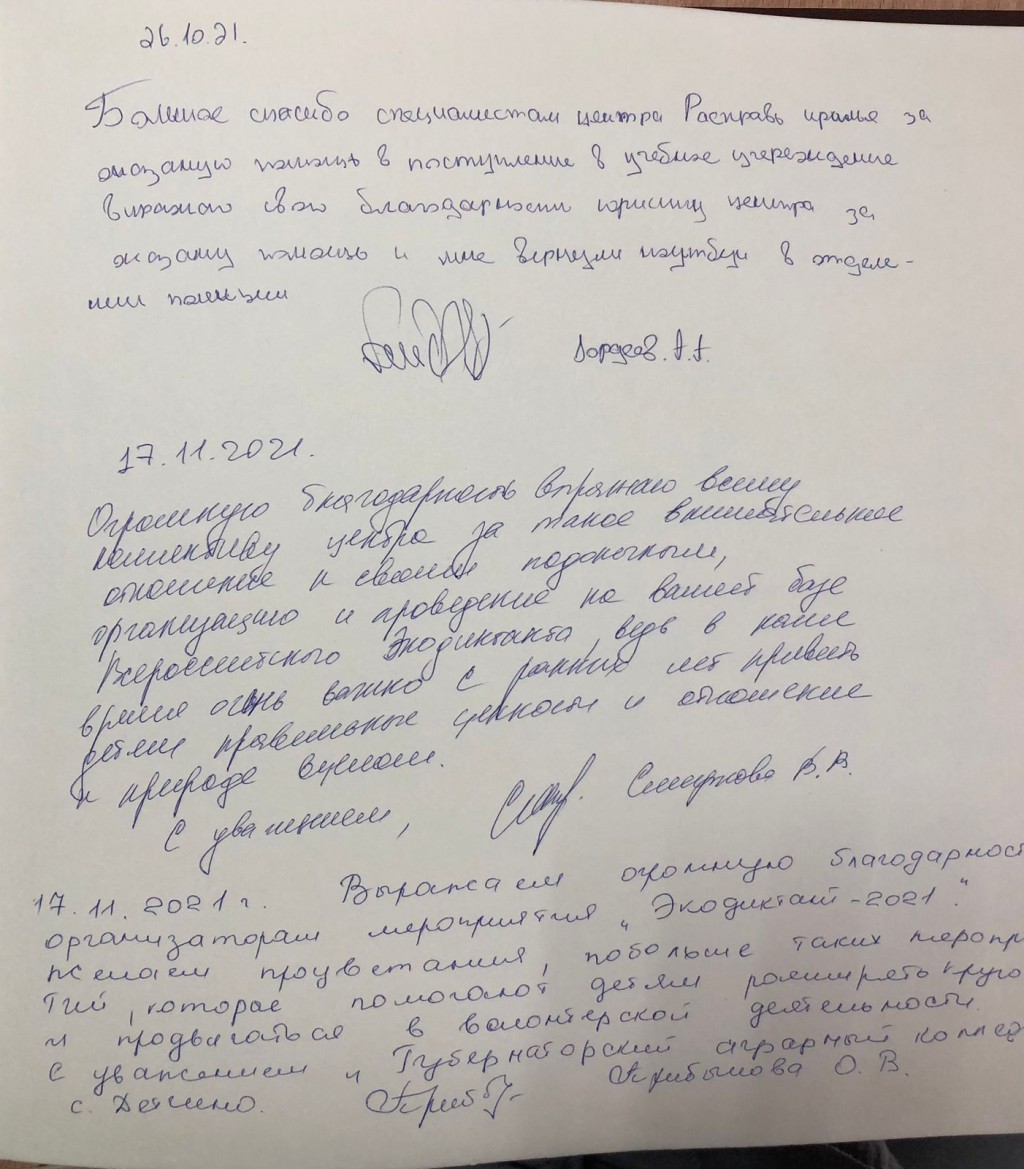 26.10.21.
Большое спасибо специалистам центра Расправь крылья за
оказаную помощь в поступление в учебное учереждение
Выражаю свою благодарности юристу центра за
оказану помощь и мне вернули ноутбук в отделе-
нии полиции
Гордеев. А.А.
17.11.2021.
Огромную благодарность выражаю всему
коллективу центра за такое внимательное
отношение к своим подопечным,
организацию и проведение на вашей базе
Всероссийского Экодиктанта, ведь в наше
время очень важно с ранних лет привить
детям правильные ценности и отношение
к природе в целом.
С уважением, Смирнова В.В.
17.11.2021г. Выражаем огромную благодарност
организаторам мероприятия „Экодиктант-2021".
Желаем процветания, побольше таких меропр
тий, которые помогают детям расширять круго
и продвигаться в волонтёрской деятельности.
С уважением, Губернаторский аграрный коллед
с. Детчино. Прибылова О. В.